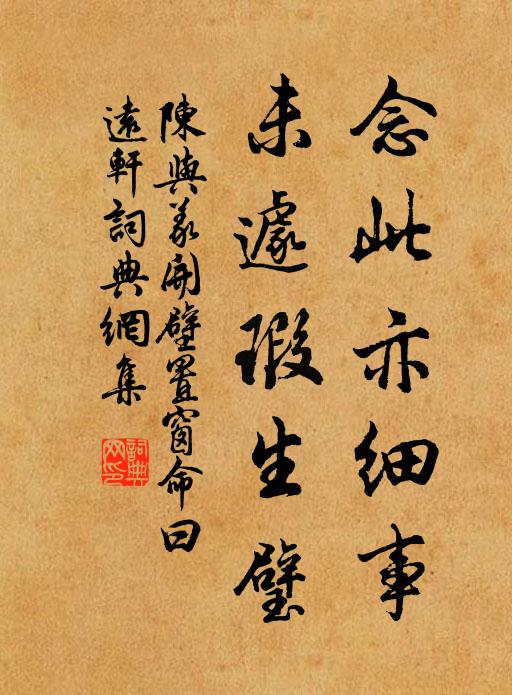 念此亦細事
未遽瑕生璧
陳與義開壁置窗命曰
遠軒詞典網集
詞典网印